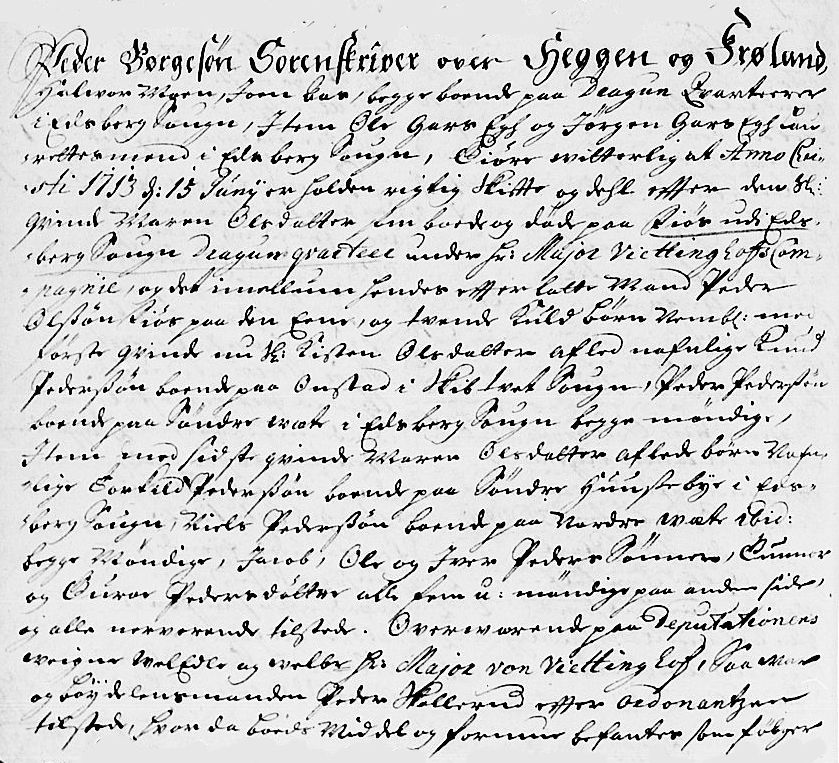 Peder Borgesøn Sorenskriver over Heggen og Frøland,
Halvor Moen, Joen begge boende paa Dragun Qvarteerer
i Edsberg Sougn, Item Ole Gars Egh og Jørgen Gars Egh Lau-
-rettesmend i Edsberg Sougn, Giøre witterlig at Anno Chri-
-sti 1713 d: 15 Junij er holden rigtig Skifte og dehl effter den Sl:
Qvinde Maren Olsdatter som boede og døde paa Kiøs udi Eds-
-berg Sougn Dragun qvarteer under hr: Major Vietinghoffs Com-
-pagnie, og det imellum hendes effterlatte Mand Peder
Olssøn Kiøs paa den Eene, og tvende Kuld børn Nembl: med
første qvinde nu Sl: Kisten Olsdatter afled nafnlige Knud
Pederssøn boende paa Onstad i Skibtvet Sougn, Peder Pederssøn
boende paa Søndre wate i Edsberg Sougn begge møndige,
Item med sidste qvinde Maren Olsdatter aflede børn Nafn-
-lige Torkild Pederssøn boende paa Søndre Huusebye i Eds-
-berg Sougn, Niels Pederssøn boende paa Nordre wate ibid:
begge Møndige, Jacob, Ole og Iver Peders Sønner, Gunner
og Guroe Pedersdøttre alle fem u: møndige paa anden side,
og alle nerverende tilstede. Overwærende paa Deputationens
weigne WelEdle og welbr hr: Major von Vietinghof, Saa war
og bøydelensmanden Peder Skollerud effter ordonantzen
tilstede, hvor da boeds Middel og formue befantes som følger